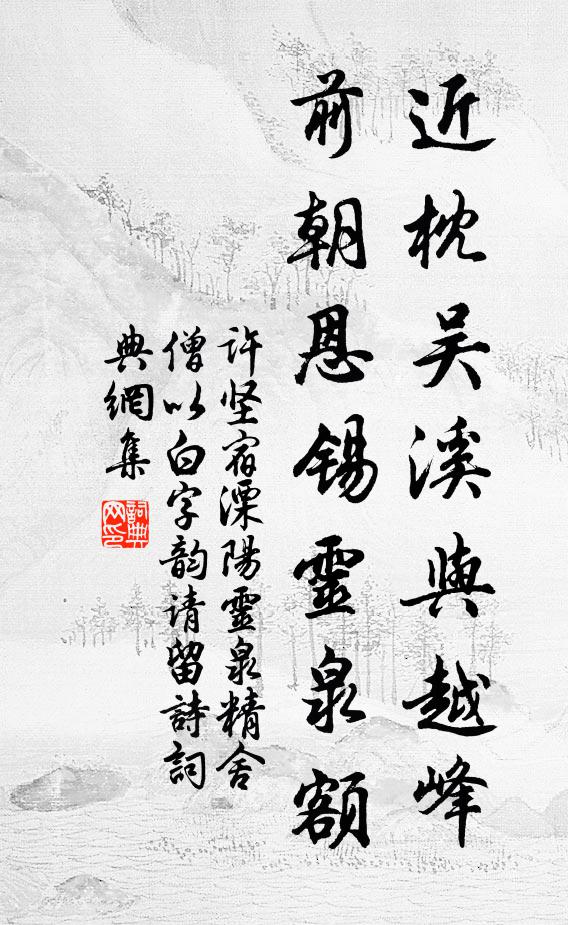 近枕吴溪與越峰
前朝恩锡靈泉額
许坚宿溧陽靈泉精舍
僧以白字韵请留詩詞
典網集
詞典
网印